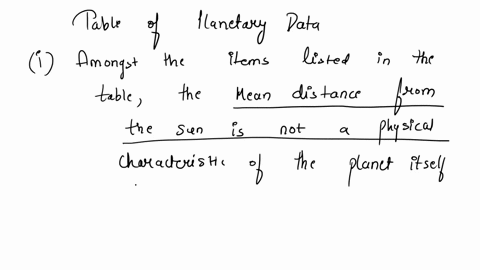 Table of Planetary Data
(i) Amongst the items listed in the
table, the Mean distance from
the sun is not a physical
characteristic of the planet itself